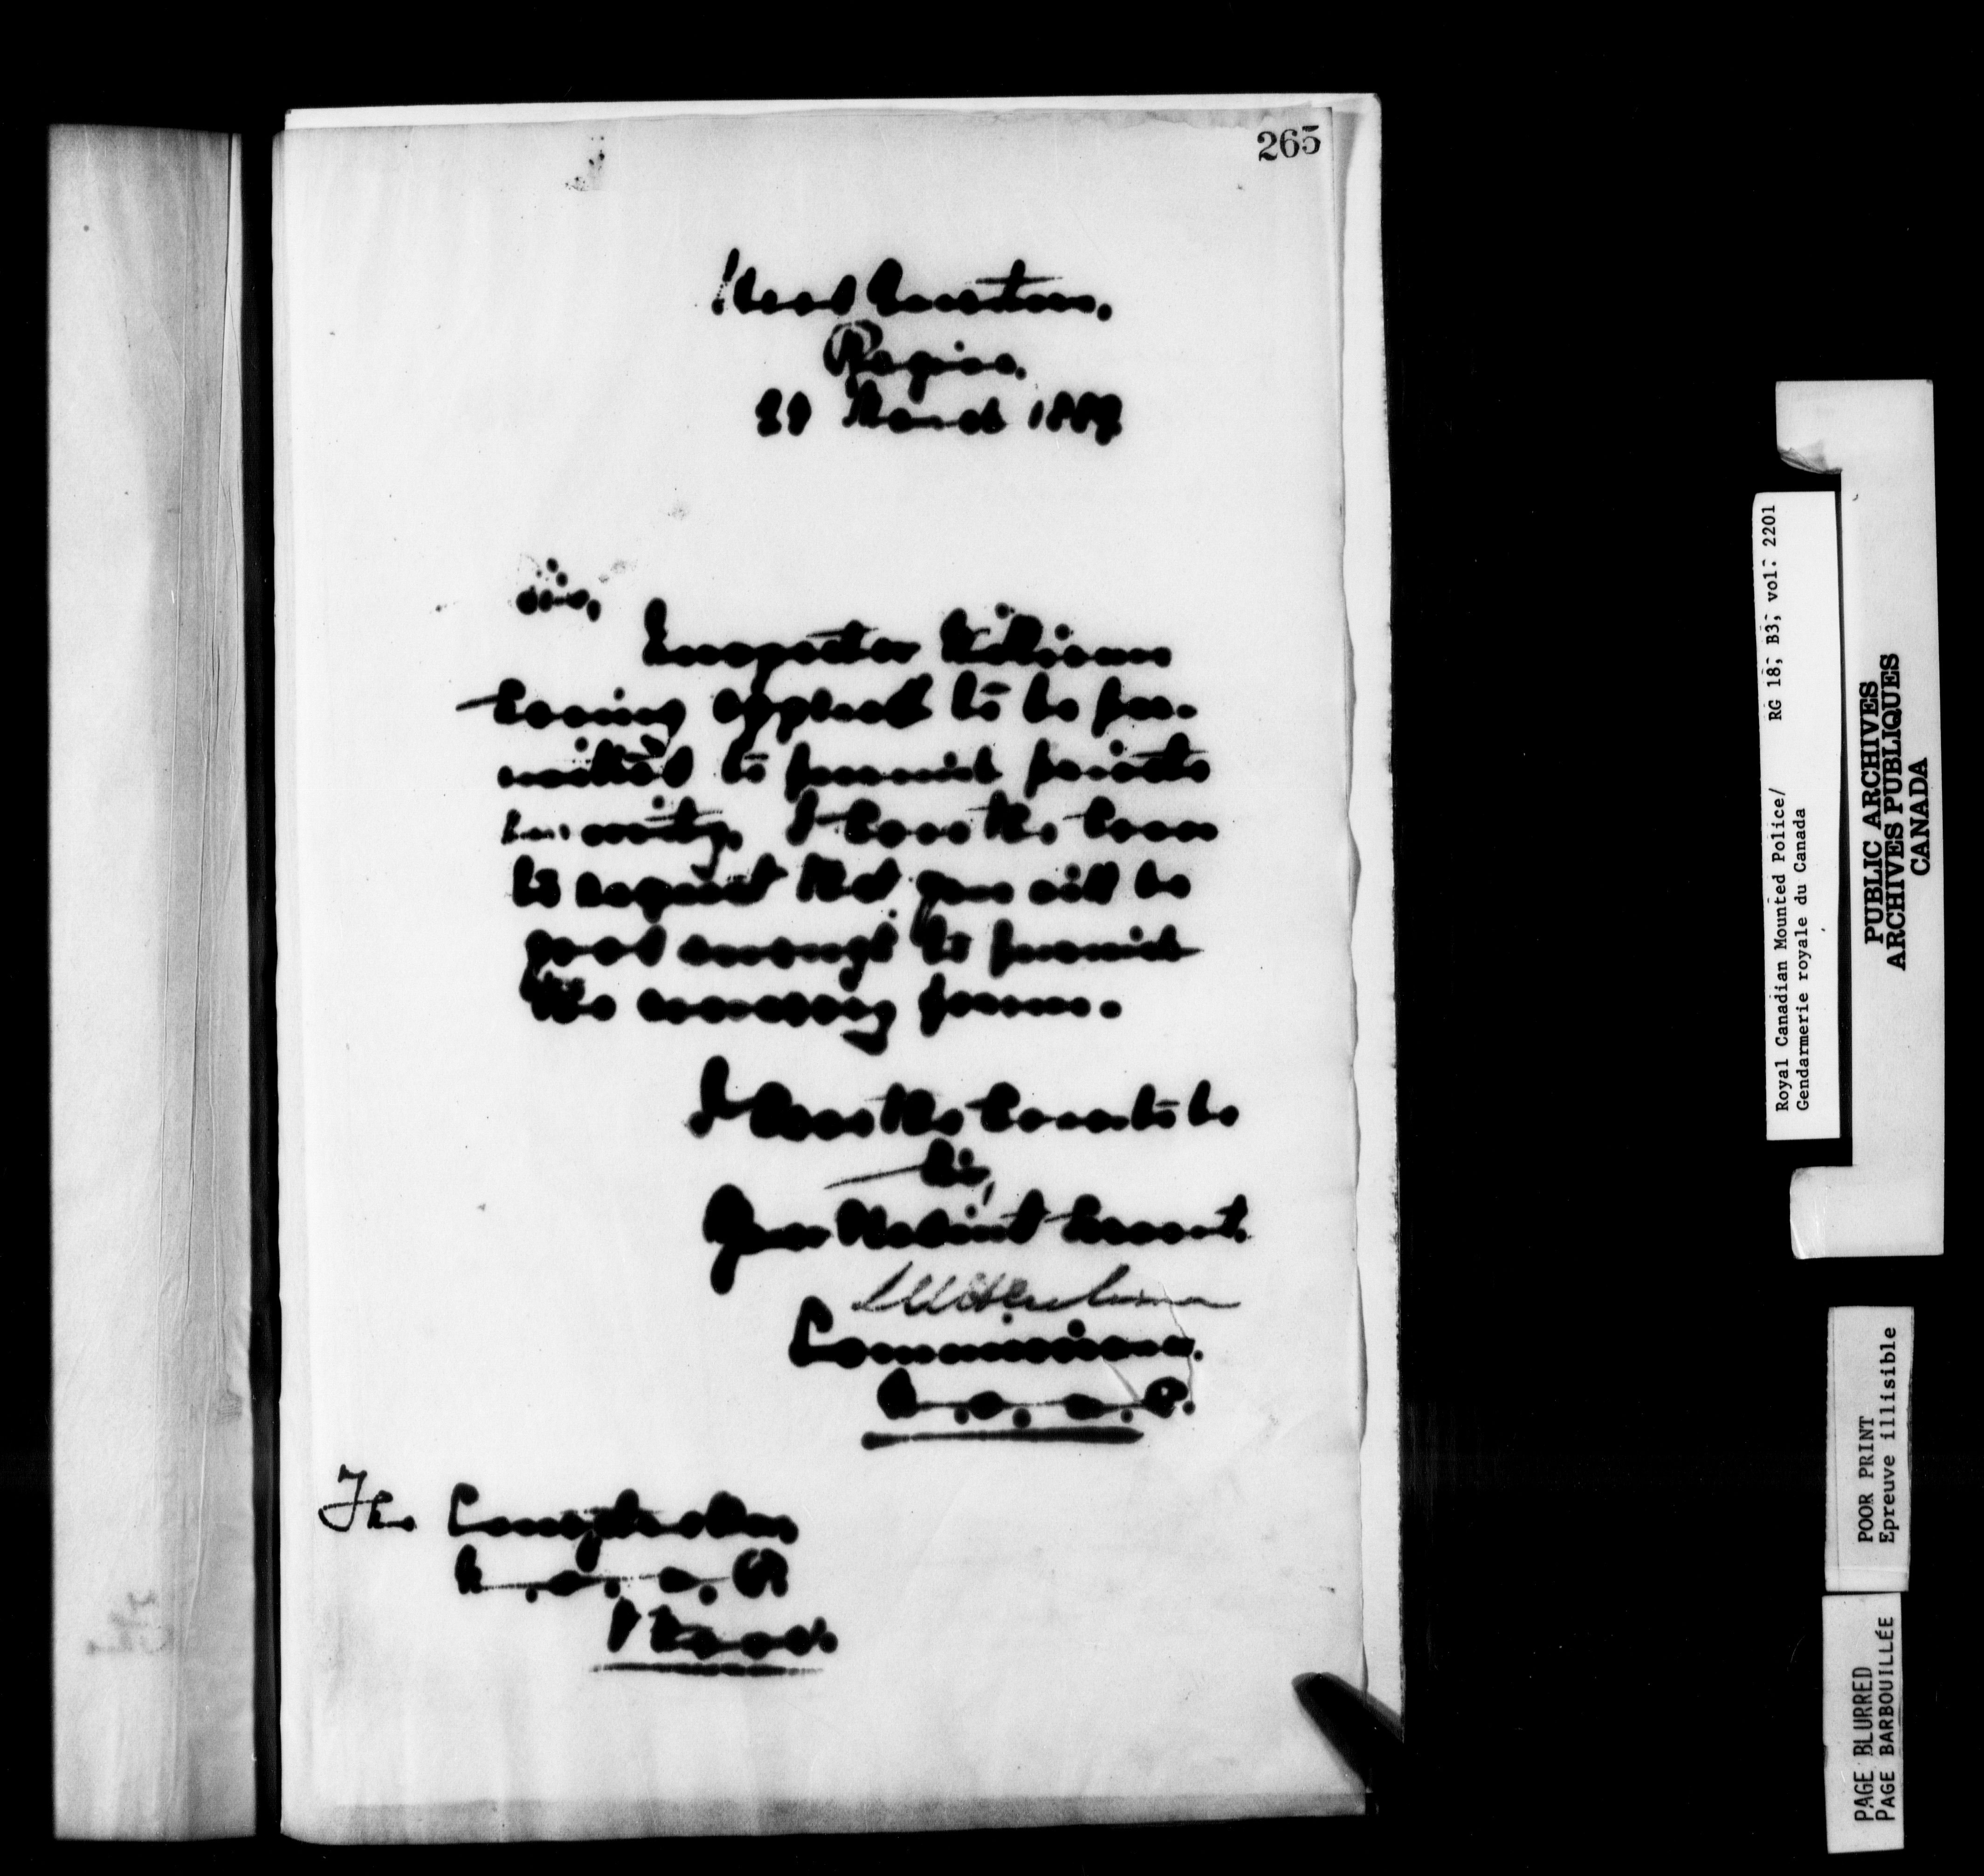 265
Head Quarters,
Regina.
29 March 1887
Sir,
Inspector
having applied to be per-
mitted to furnish private
security, I have the honor
to request that you will be
good enough to furnish
the necessary forms.
I have the honor to be
Sir,
Your Obedient Servant.
Commissioner.
N.W.M.P.
The Comptroller,
N.W.M.P
Ottawa.
Royal Canadian Mounted Police/ RG 18; B3; vol: 2201
Gendarmerie royale du Canada
PUBLIC ARCHIVES
ARCHIVES PUBLIQUES
CANADA
POOR PRINT
Epreuve illisible
PAGE BLURRED
PAGE BARBOUILLÉE